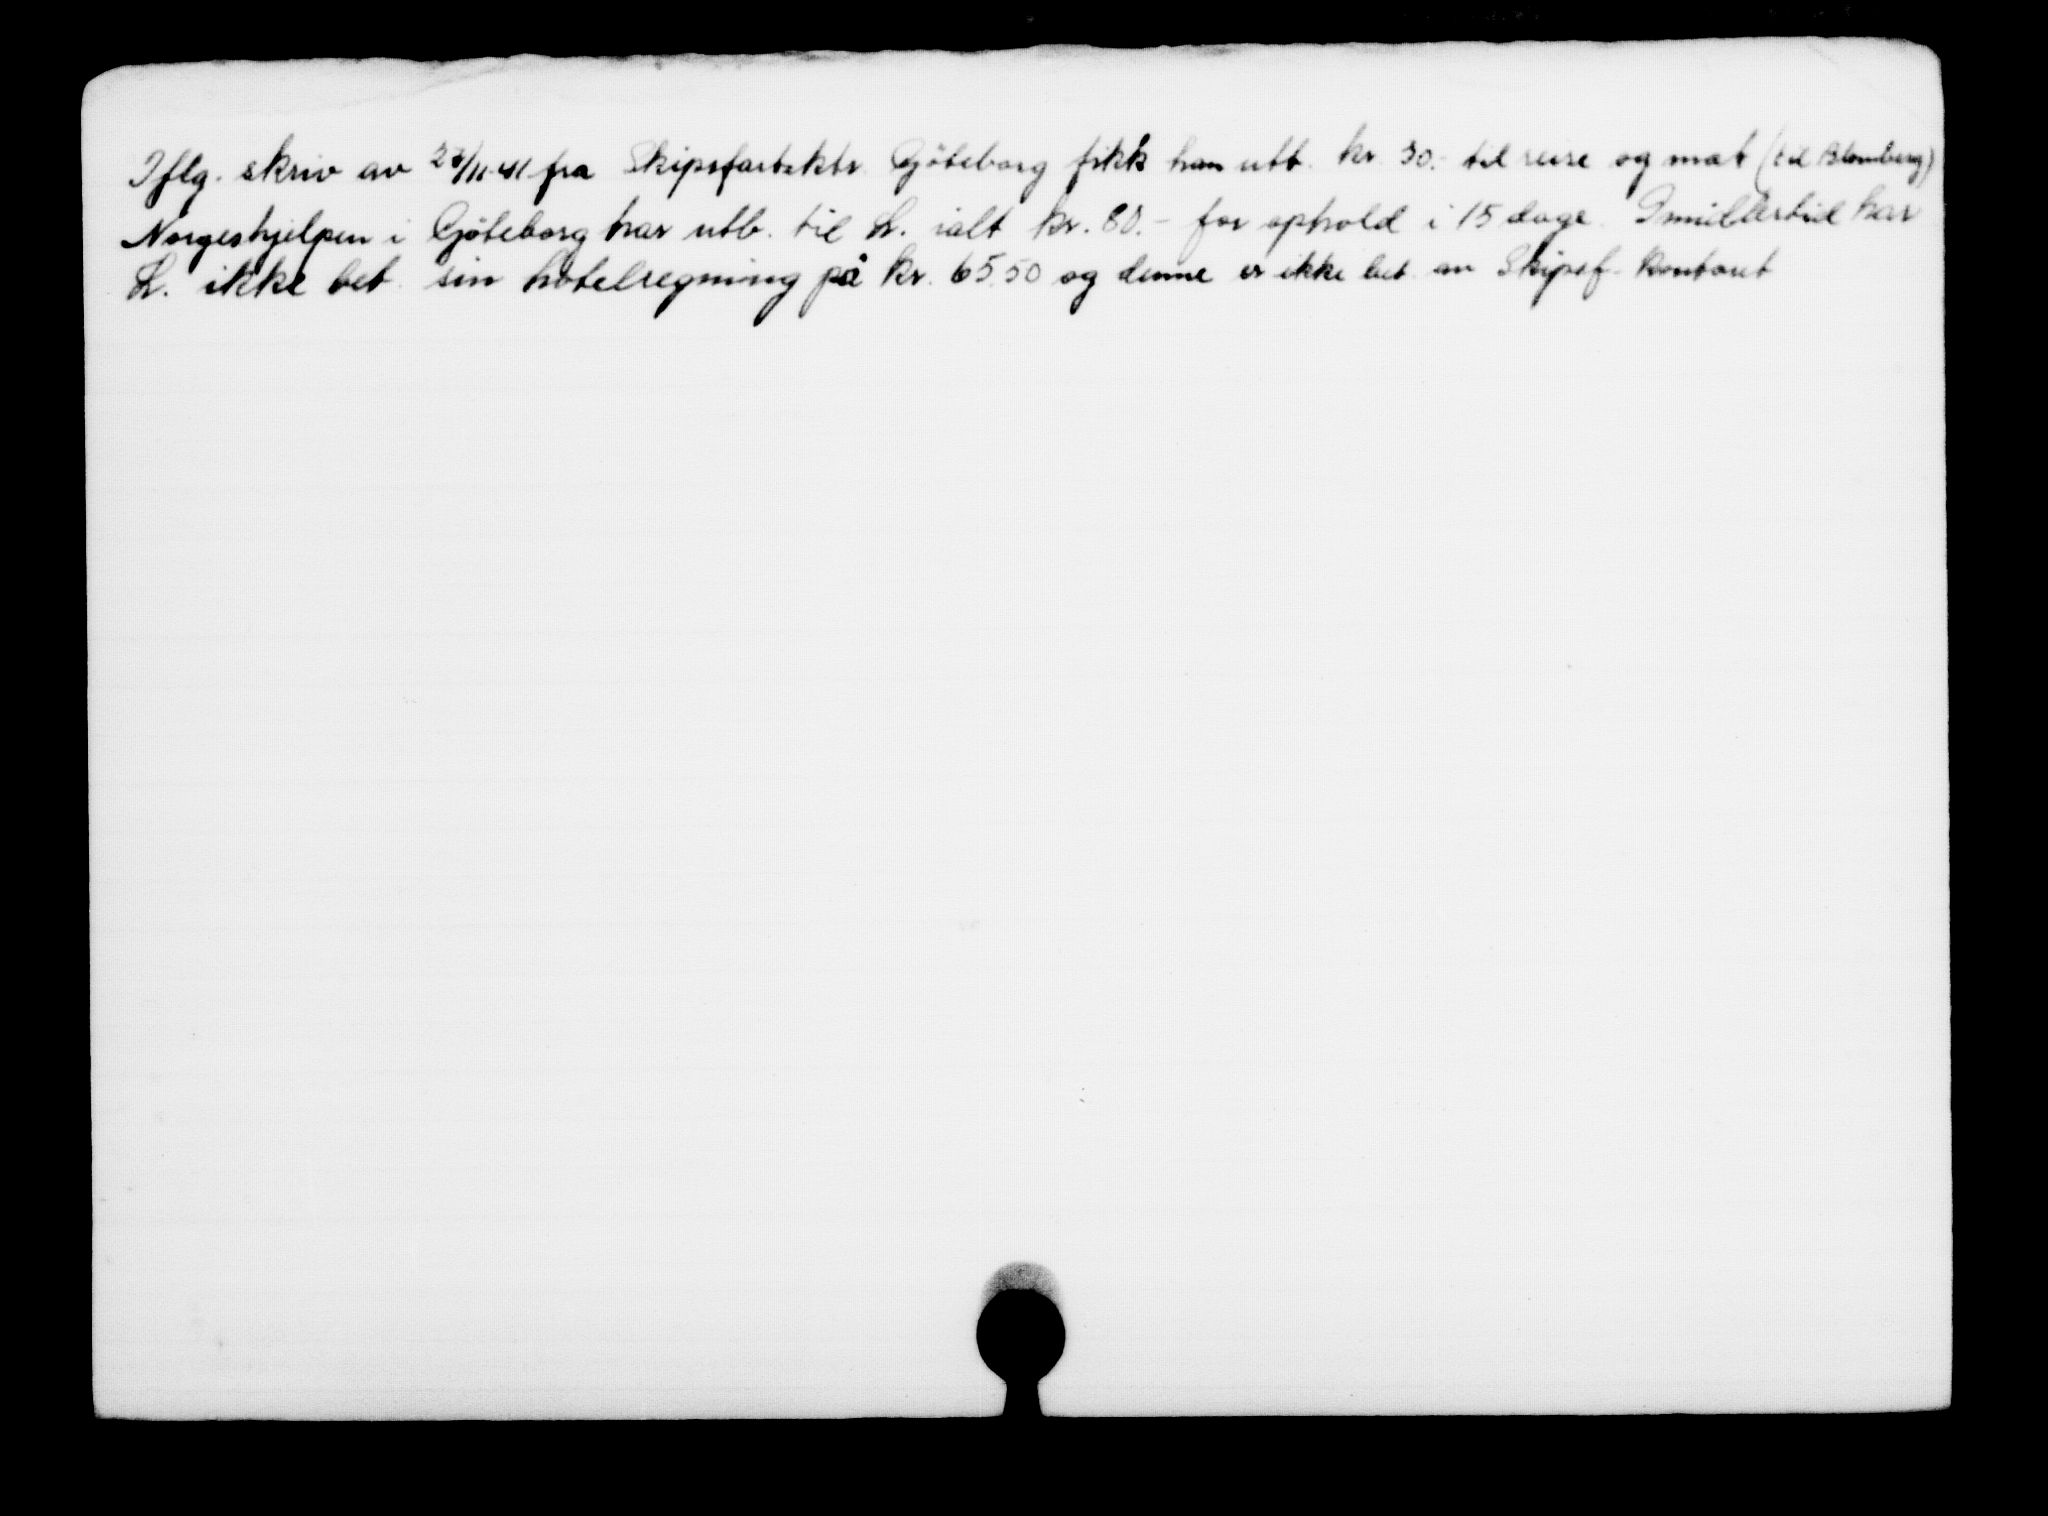 Iflg. skriv av 27/11-41 fra Skipsfartsktr. Göteborg fikk han utb. kr. 30.- til reise og mat (til Blomberg)
Norgeshjelpen i Göteborg har utb. til L. ialt kr. 80.- for ophold i 15 dage. Imidlertid har
L. ikke bet. sin hotelregning på kr. 65.50 og denne er ikke bet. av Skipsf. kontoret